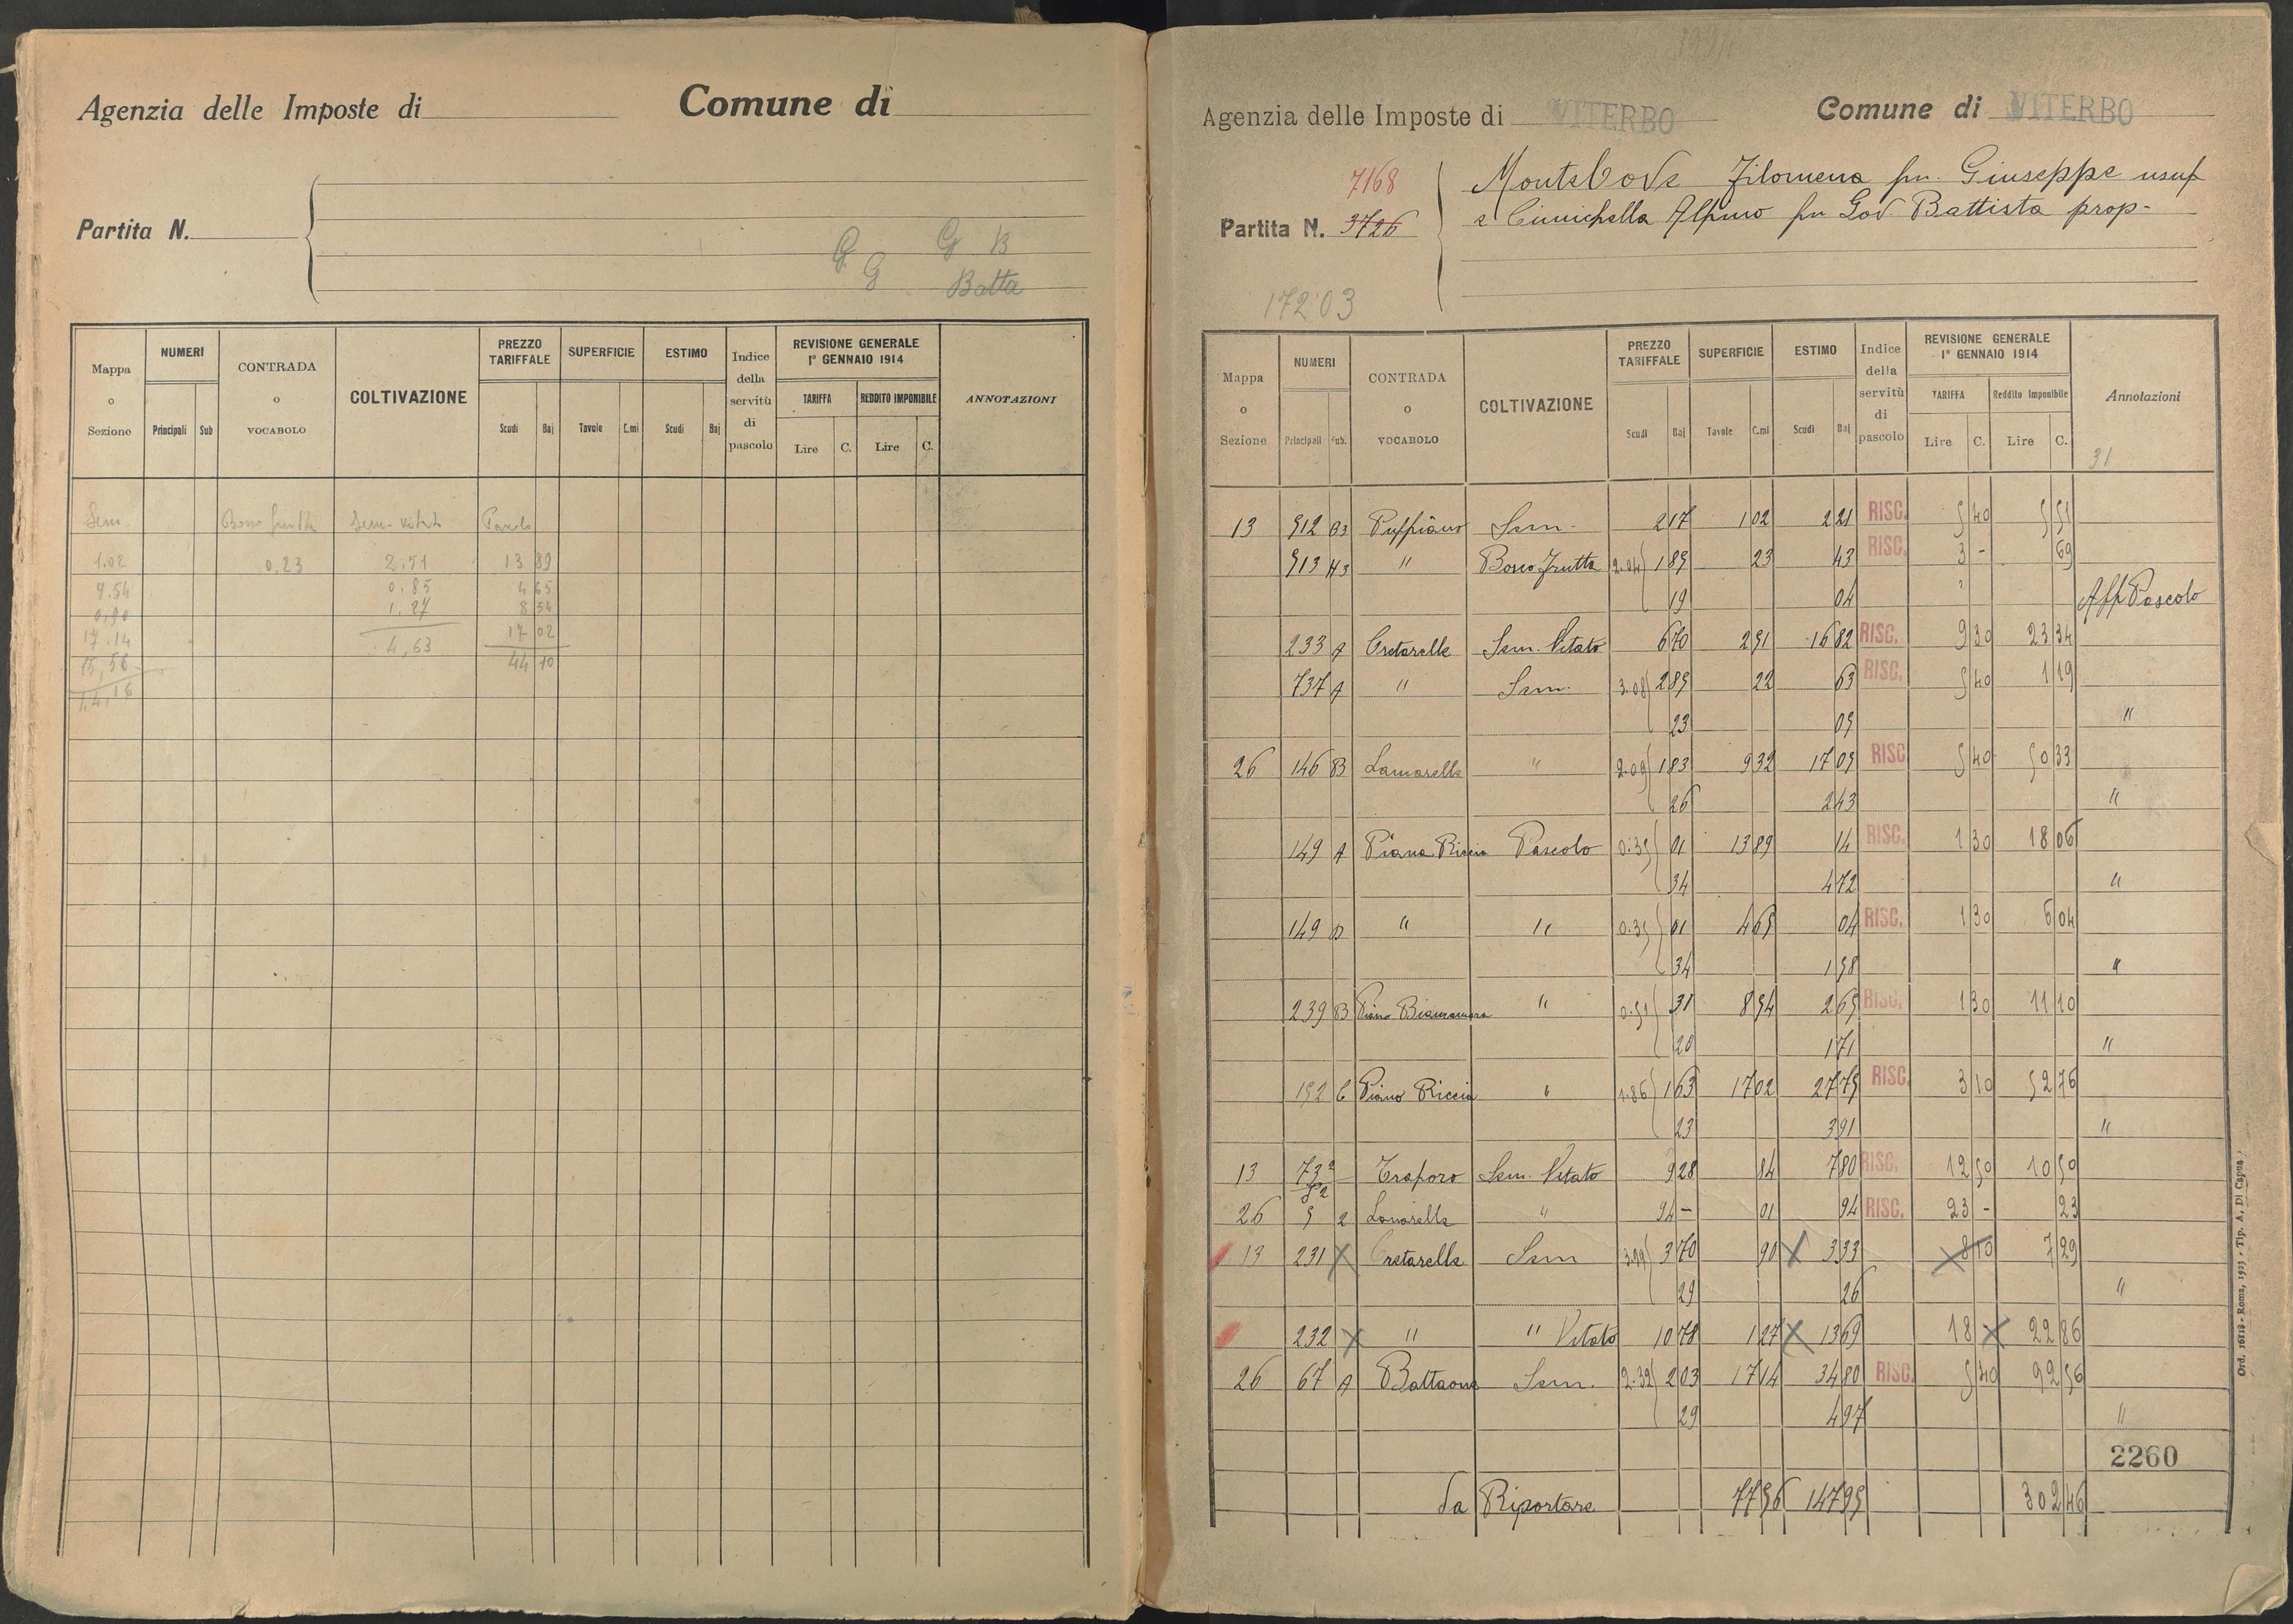 Agenzia delle Imposte di Comune di
Partita N.
G G B
G Batta
Mappa o Sezione NUMERI Principali Sub CONTRADA o VOCABOLO COLTIVAZIONE PREZZO TARIFFALE Scudi Baj SUPERFICIE Tavole C.mi ESTIMO Scudi Baj Indice della servitù di pascolo REVISIONE GENERALE 1° GENNAIO 1914 TARIFFA Lire C. REDDITO IMPONIBILE Lire C. ANNOTAZIONI
Sem. Bosco frutta Sem. vitato Pascolo
1.02 0,23 2.51 13 89
9.54 0,85 4 65
0,90 1,27 8 54
17.14 4,63 17 02
15,56 44 10
Agenzia delle Imposte di VITERBO Comune di VITERBO
7168
Partita N. 3726
Montebove Filomena fu Giuseppe usuf
e Cimichella Alfimo fu Gio. Battista prop-
172:03
Mappa o Sezione NUMERI Principali Sub. CONTRADA o VOCABOLO COLTIVAZIONE PREZZO TARIFFALE Scudi Baj SUPERFICIE Tavole C.mi ESTIMO Scudi Baj Indice della servitù di pascolo REVISIONE GENERALE 1° GENNAIO 1914 TARIFFA Lire C. Reddito Imponibile Lire C. Annotazioni
31
13 512 B3 Puffiano Sem. 2 17 1 02 2 21 RISC. 5 40 5 51
513 H3 " Bosco frutta 2.04 1 85 23 43 RISC. 3 - 69
19 04 Aff Pascolo
233 A Cretarelle Sem. Vitato 6 70 2 51 16 82 RISC. 9 30 23 34
737 A " Sem. 3.08 2 85 22 63 RISC. 5 40 1 19
23 05 "
26 146 B Lamarelle " 2.09 1 83 9 32 17 05 RISC 5 40 50 33
26 2 43 "
149 A Piana Riccio Pascolo 0.35 01 13 89 14 RISC. 1 30 18 06
34 4 72 "
149 B " " 0.35 01 4 65 04 RISC. 1 30 6 04
34 1 58 "
239 B Piano Bicumunara " 0.51 31 8 54 2 65 RISC. 1 30 11 10
20 1 71 "
152 C Piano Riccio " 1.86 1 63 17 02 27 75 RISC. 3 10 52 76
23 3 91 "
13 73 2/52 Traporo Sem. Vitato 9 28 84 7 80 RISC. 12 50 10 50
26 5 2 Lamarelle " 94 - 01 94 RISC. 23 - 23
13 231 Cretarelle Sem 3.99 3 70 90 3 33 8 10 7 29
29 26 "
232 " " Vitato 10 78 1 27 13 69 18 22 86
26 67 A Battaone Sem. 2.32 2 03 17 14 34 80 RISC. 5 40 92 56
29 4 97 "
2260
da Riportare 77 56 147 95 302 46
Ord. 16718 - Roma, 1925 - Tip. A. Di Capua